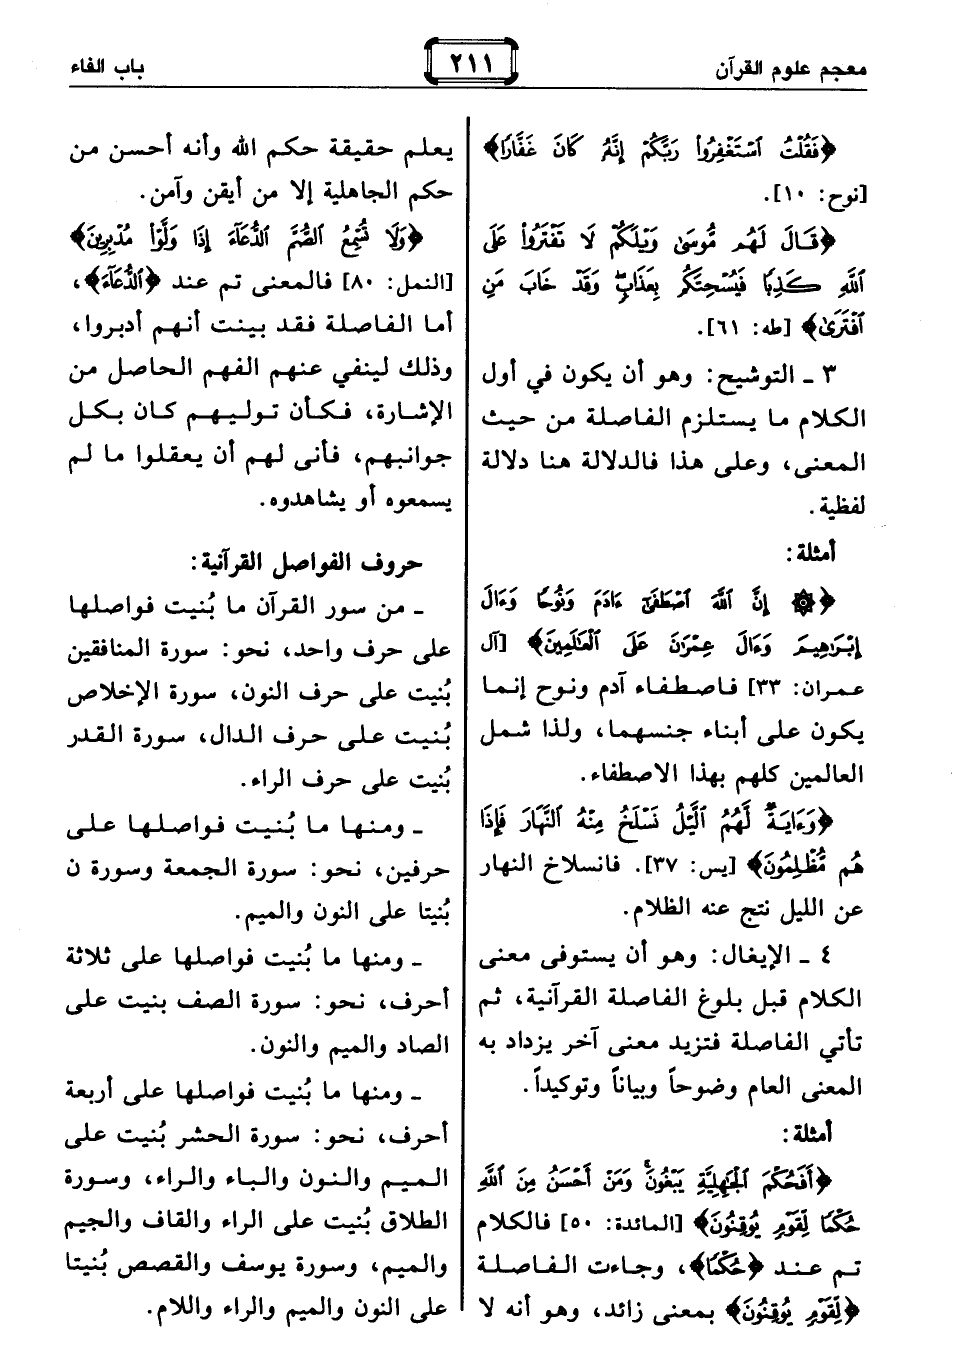 معجم علوم القرآن
٢١١
باب الفاء
﴿فَقُلْتُ ٱسْتَغْفِرُوا۟ رَبَّكُمْ إِنَّهُۥ كَانَ غَفَّارًا﴾
[نوح: ١٠].
﴿قَالَ لَهُم مُّوسَىٰ وَيْلَكُمْ لَا تَفْتَرُوا۟ عَلَى
ٱللَّهِ كَذِبًا فَيُسْحِتَكُم بِعَذَابٍ ۖ وَقَدْ خَابَ مَنِ
ٱفْتَرَىٰ﴾ [طه: ٦١].
٣ ـ التوشيح: وهو أن يكون في أول
الكلام ما يستلزم الفاصلة من حيث
المعنى، وعلى هذا فالدلالة هنا دلالة
لفظية.
أمثلة:
﴿۞ إِنَّ ٱللَّهَ ٱصْطَفَىٰٓ ءَادَمَ وَنُوحًا وَءَالَ
إِبْرَٰهِيمَ وَءَالَ عِمْرَٰنَ عَلَى ٱلْعَٰلَمِينَ﴾ [آل
عمران: ٣٣] فاصطفاء آدم ونوح إنما
يكون على أبناء جنسهما، ولذا شمل
العالمين كلهم بهذا الاصطفاء.
﴿وَءَايَةٌ لَّهُمُ ٱلَّيْلُ نَسْلَخُ مِنْهُ ٱلنَّهَارَ فَإِذَا
هُم مُّظْلِمُونَ﴾ [يس: ٣٧]. فانسلاخ النهار
عن الليل نتج عنه الظلام.
٤ ـ الإيغال: وهو أن يستوفى معنى
الكلام قبل بلوغ الفاصلة القرآنية، ثم
تأتي الفاصلة فتزيد معنى آخر يزداد به
المعنى العام وضوحاً وبياناً وتوكيداً.
أمثلة:
﴿أَفَحُكْمَ ٱلْجَٰهِلِيَّةِ يَبْغُونَ ۚ وَمَنْ أَحْسَنُ مِنَ ٱللَّهِ
حُكْمًا لِّقَوْمٍ يُوقِنُونَ﴾ [المائدة: ٥٠] فالكلام
تم عند ﴿حُكْمًا﴾، وجاءت الفاصلة
﴿لِّقَوْمٍ يُوقِنُونَ﴾ بمعنى زائد، وهو أنه لا
يعلم حقيقة حكم الله وأنه أحسن من
حكم الجاهلية إلا من أيقن وآمن.
﴿وَلَا تُسْمِعُ ٱلصُّمَّ ٱلدُّعَآءَ إِذَا وَلَّوْا۟ مُدْبِرِينَ﴾
[النمل: ٨٠] فالمعنى تم عند ﴿ٱلدُّعَآءَ﴾،
أما الفاصلة فقد بينت أنهم أدبروا،
وذلك لينفي عنهم الفهم الحاصل من
الإشارة، فكأن توليهم كان بكل
جوانبهم، فأنى لهم أن يعقلوا ما لم
يسمعوه أو يشاهدوه.
حروف الفواصل القرآنية:
ـ من سور القرآن ما بُنيت فواصلها
على حرف واحد، نحو: سورة المنافقين
بُنيت على حرف النون، سورة الإخلاص
بُنيت على حرف الدال، سورة القدر
بُنيت على حرف الراء.
ـ ومنها ما بُنيت فواصلها على
حرفين، نحو: سورة الجمعة وسورة ن
بُنيتا على النون والميم.
ـ ومنها ما بُنيت فواصلها على ثلاثة
أحرف، نحو: سورة الصف بنيت على
الصاد والميم والنون.
ـ ومنها ما بُنيت فواصلها على أربعة
أحرف، نحو: سورة الحشر بُنيت على
الميم والنون والباء والراء، وسورة
الطلاق بُنيت على الراء والقاف والجيم
والميم، وسورة يوسف والقصص بُنيتا
على النون والميم والراء واللام.